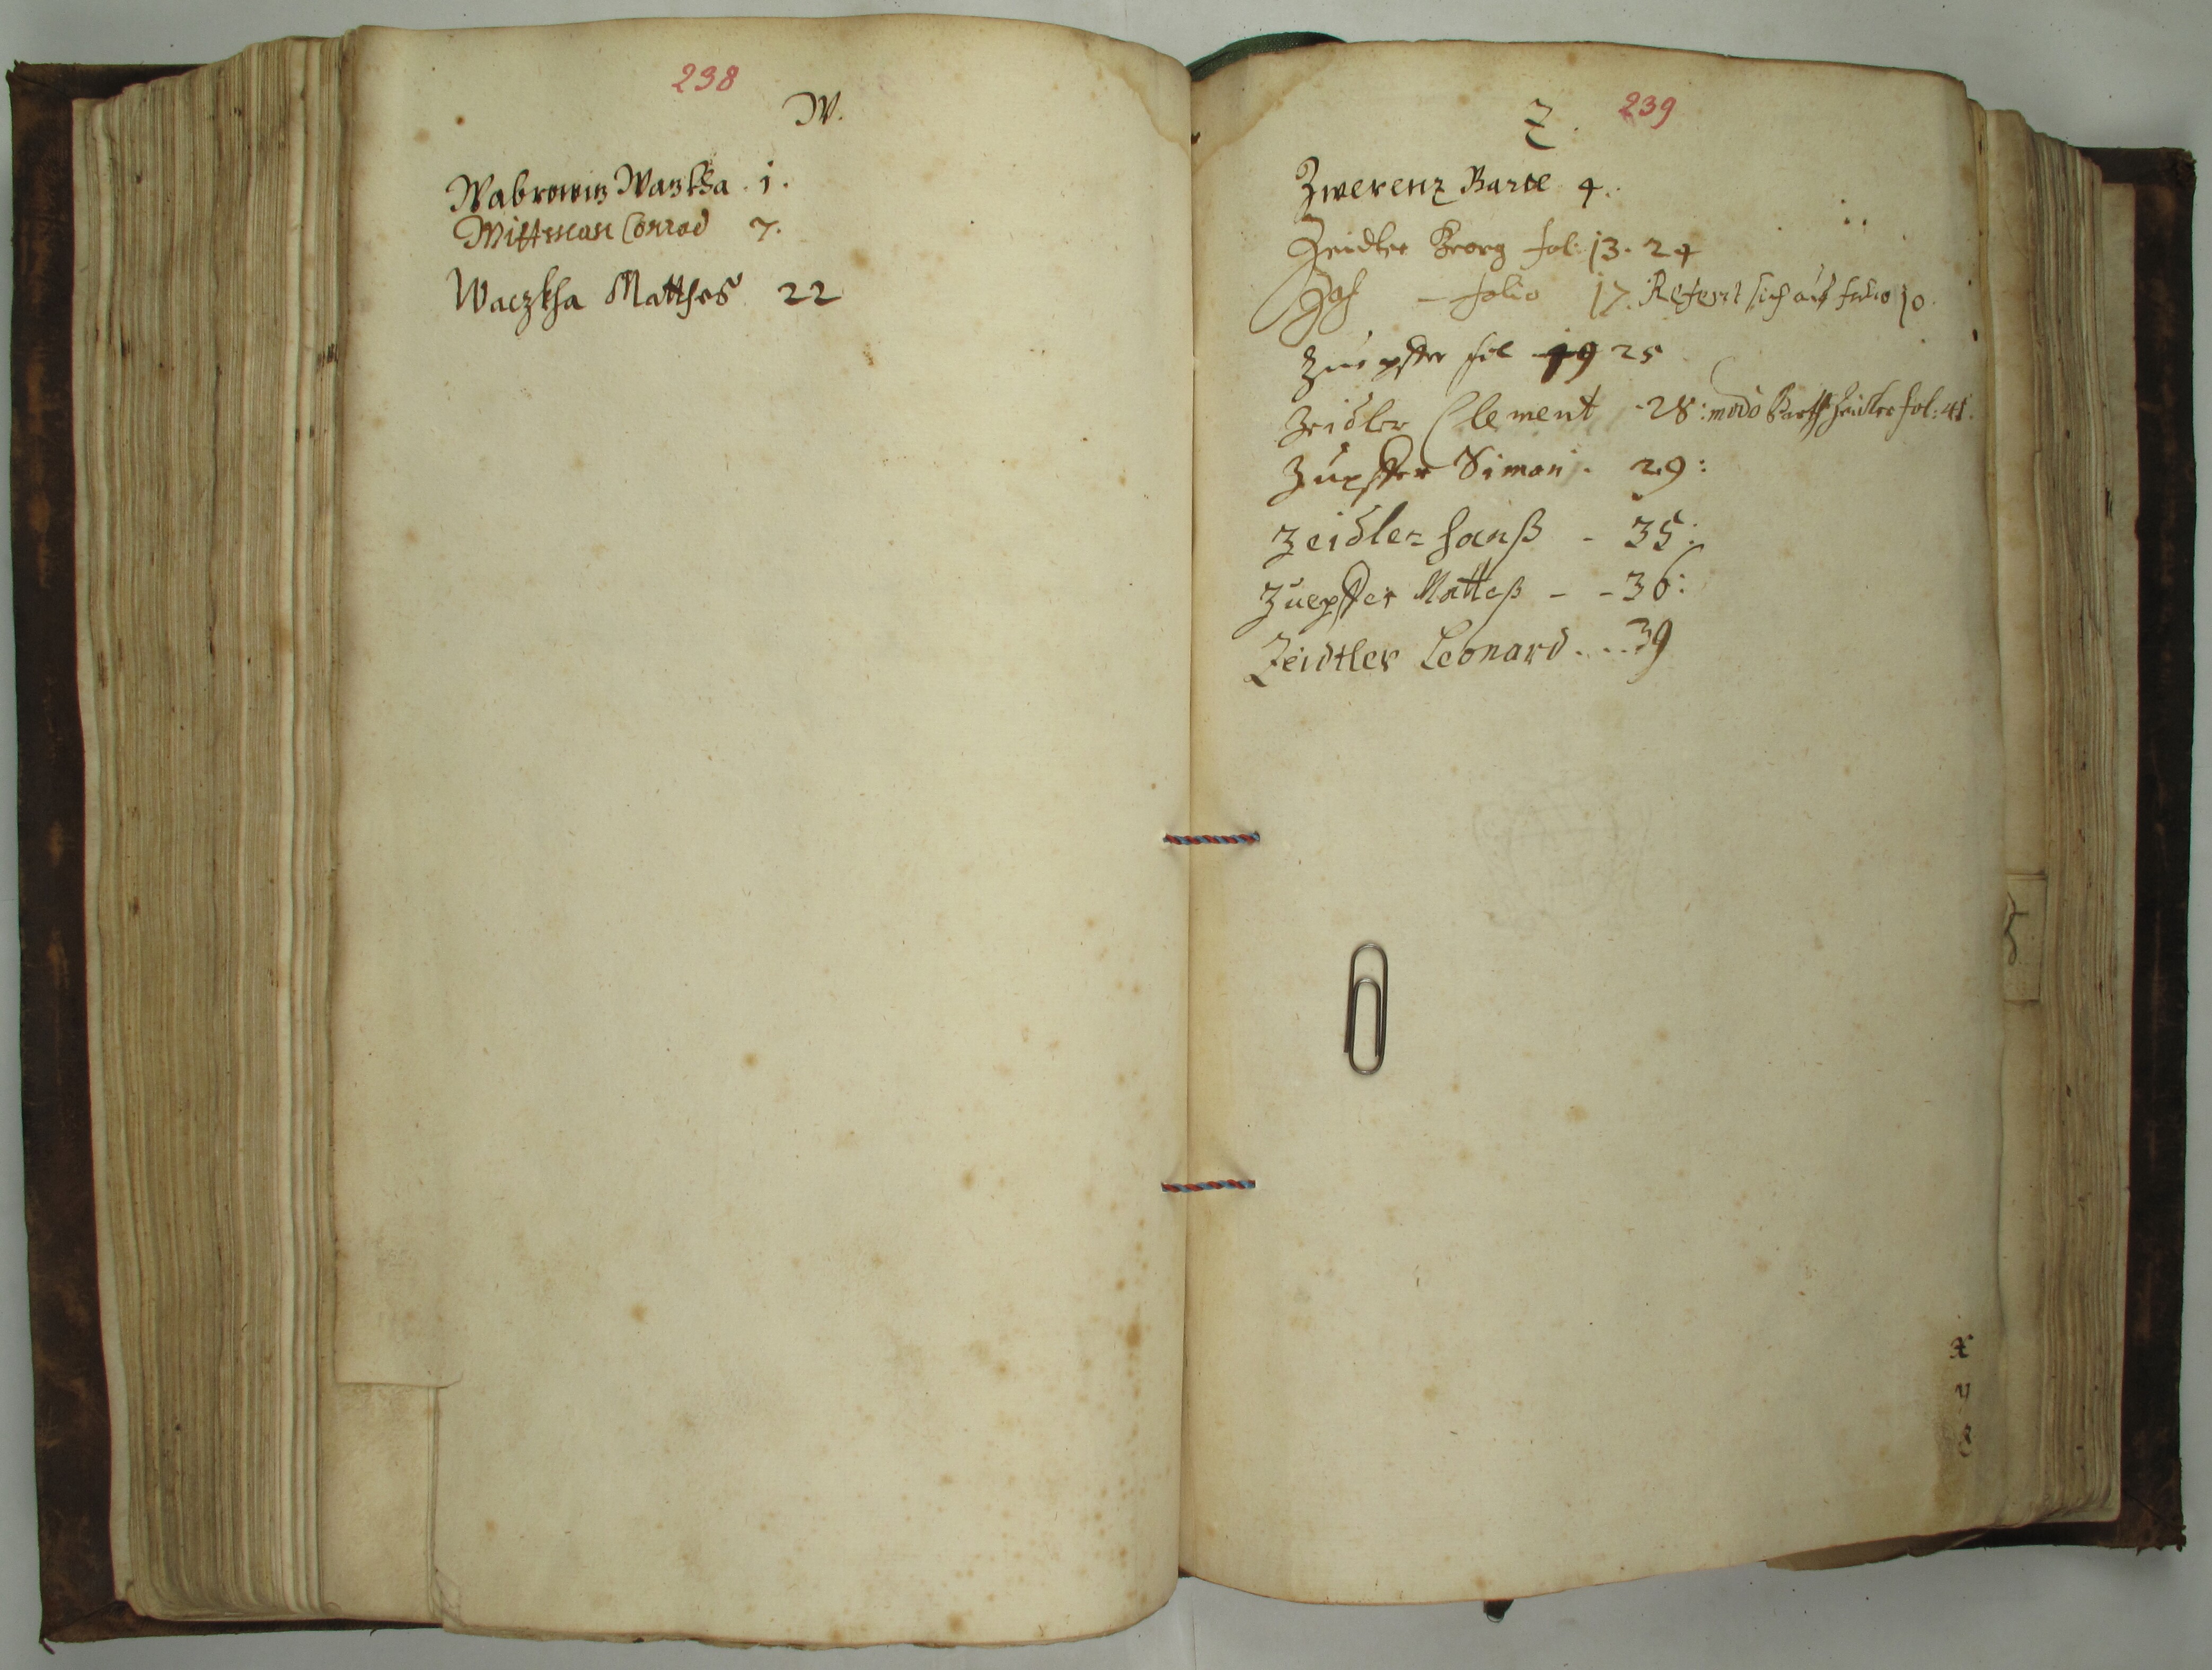 238
W.
Wabrowitz Watzkha . 1 .
Wittman Conrad 7.
Waczkha Matthes 22
239
Z.
Zwerenz Bartl 4.
Zeidler Georg fol: 13. 24
folio 17. Referirt sich auf folio 10.
Zuepfer fol 19 25
Zeidler Clement - 28: modo Barth Zeidler fol: 41.
Zupffer Simon . 29:
Zeidler Hanß - 35:
Zuepffer Matteß - - 36:
Zeidtler Leonard . . . 39
X
Y
Z